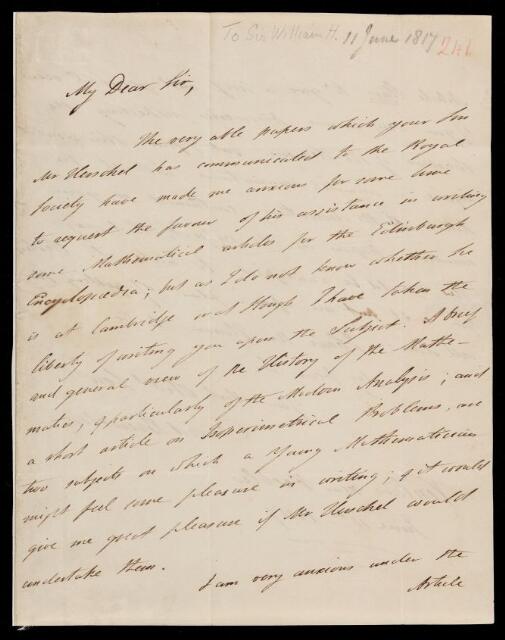 To Sir William H. 11 June 1817 241
My Dear Sir,
The very able papers which your Son
Mr Herschel has communicated to the Royal
Society have made me anxious for some time
to request the favour of his assistance in writing
some Mathematical articles for the Edinburgh
Encyclopædia; but as I do not know whether he
is at Cambridge or at Slough I have taken the
liberty of writing you upon the Subject. A brief
and general view of the History of the Mathe-
matics, & particularly of the Modern Analysis; and
a short article on Isoperimetrical Problems, are
two subjects on which a Young Mathematician
might feel some pleasure in writing; & it would
give me great pleasure if Mr Herschel would
undertake them.
I am very anxious under the
Article